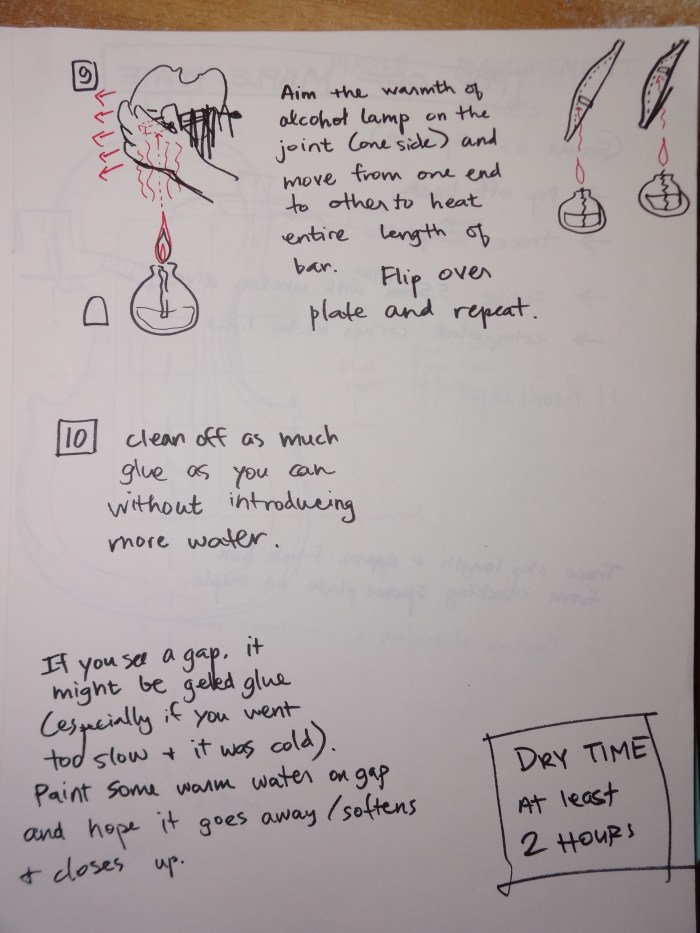 9
Aim the warmth of
alcohol lamp on the
joint (one side) and
move from one end
to other to heat
entire length of
bar. Flip over
plate and repeat.
10
clean off as much
glue as you can
without introducing
more water.
If you see a gap, it
might be geled glue
(especially if you went
too slow + it was cold).
Paint some warm water on gap
and hope it goes away/softens
+ closes up.
DRY TIME
At least
2 HOURS